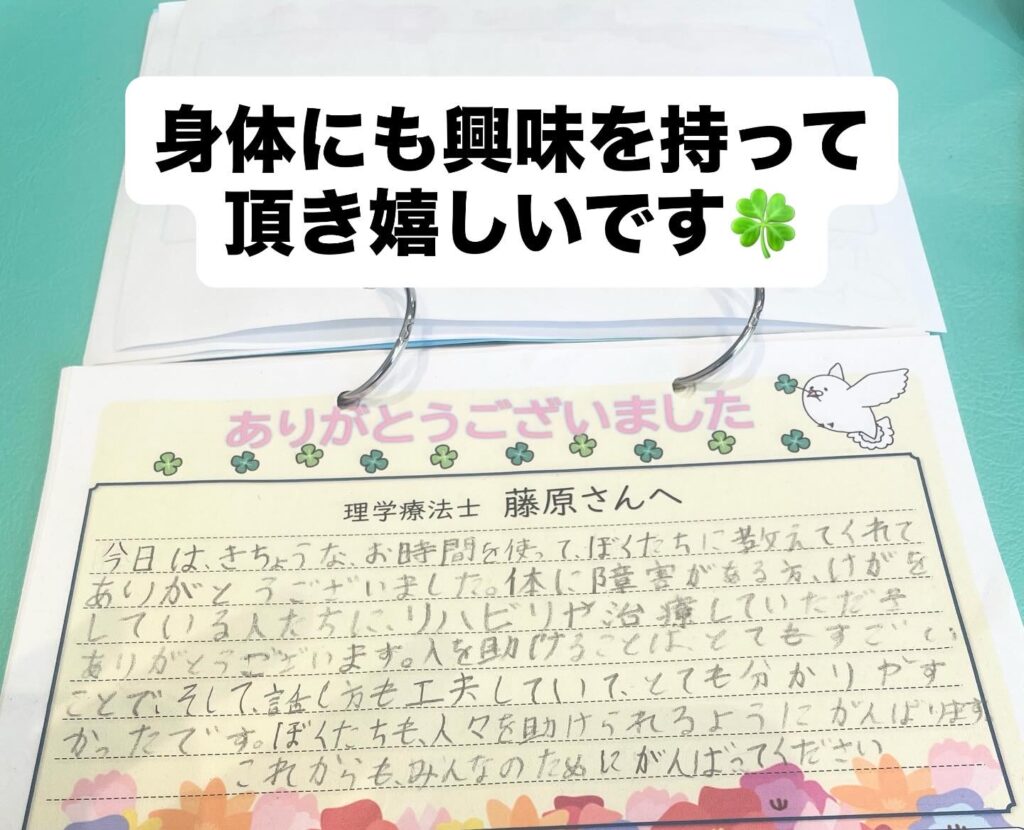 身体にも興味を持って
頂き嬉しいです🍀
ありがとうございました
理学療法士 藤原さんへ
今日は、きちょうな、お時間を使って、ぼくたちに教えてくれて
ありがとうございました。体に障害がある方、けがを
している人たちに、リハビリや治療していただき
ありがとうございます。人を助けることは、とてもすごい
ことで、そして、話し方も工夫していて、とても分かりやす
かったです。ぼくたちも、人々を助けられるようにがんばります。
これからも、みんなのためにがんばってください